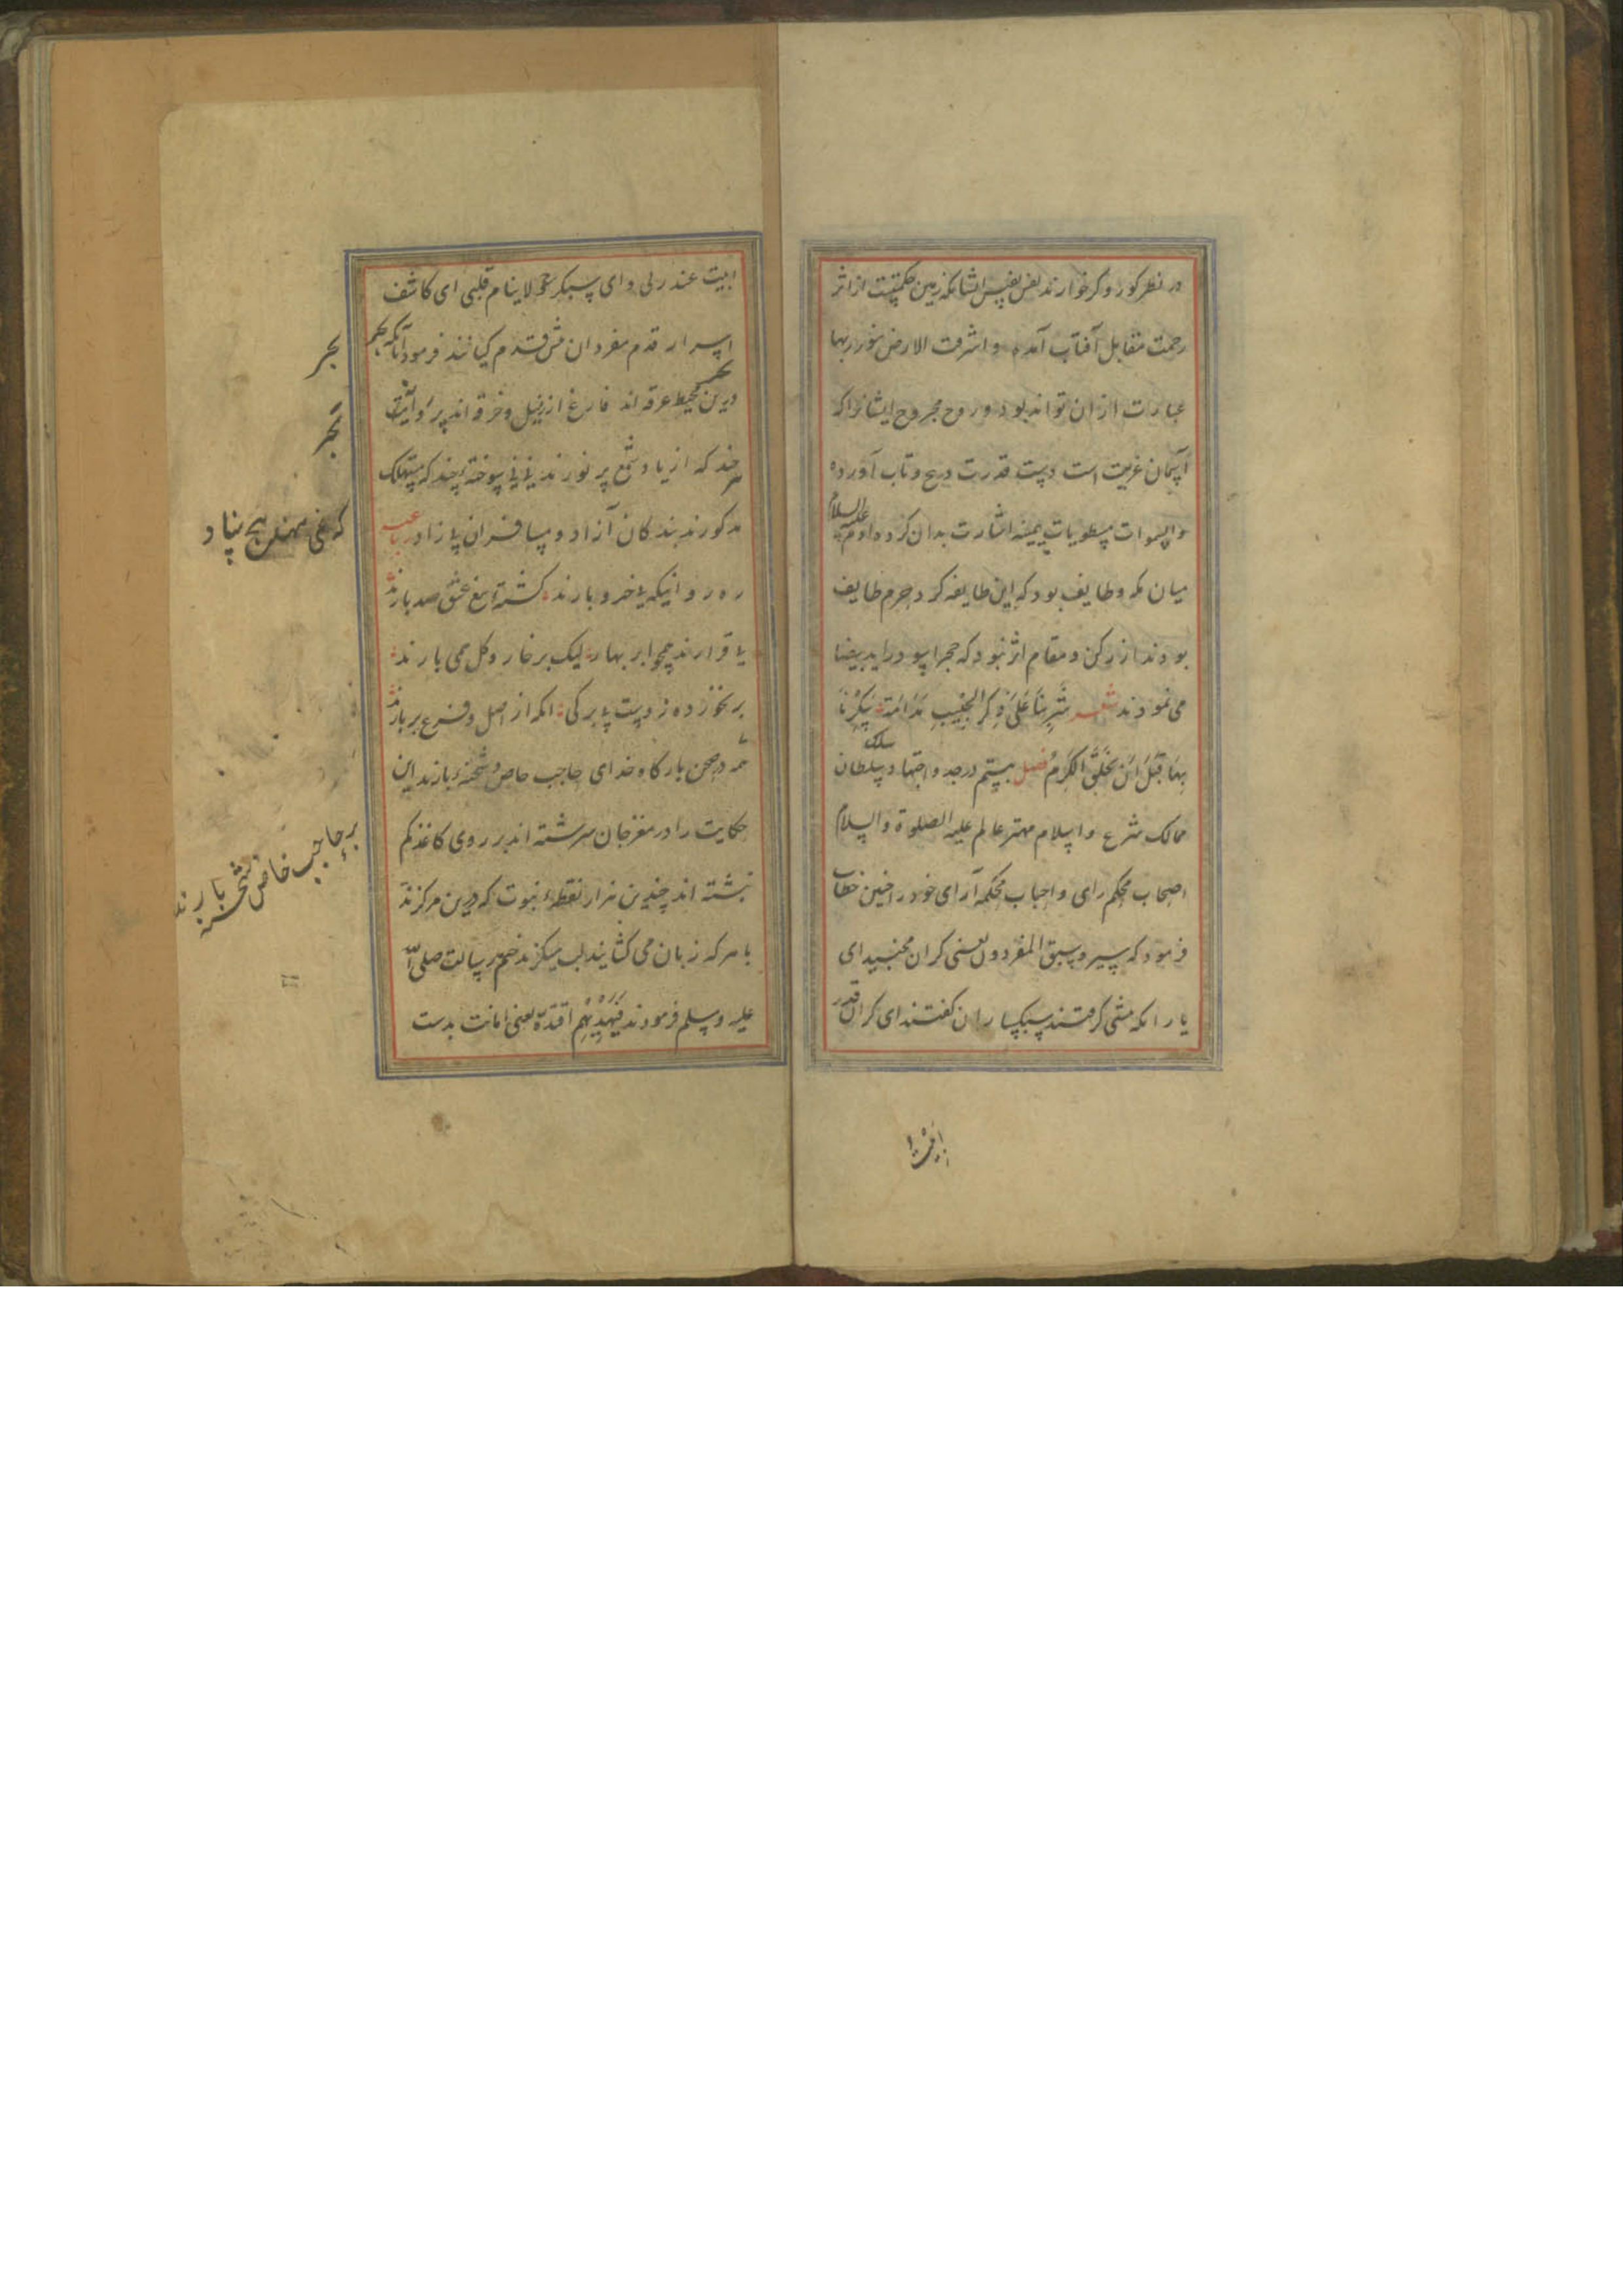 در نظر کور و کر خوارند نفس نفیس ایشانکه زمین حکمتست از اثر
رحمت مقابل آفتاب آمده و اشرقت الارض بنور ربها
عبارت از ان تواند بود و روح مجروح ایشانرا که
آسمان عزیمت است دست قدرت در پیچ و تاب آورده
والسموات مطویات بیمینه اشارت بدان کرده آدم علیه السلام
میان مکه و طایف بود که این طایفه کرد حرم طایف
بودند از رکن و مقام اثر نبود که حجر اسود را ید بیضا
می نمودند شعر شَرِبنَا عَلَی ذِکرِ الحَبِیبِ مُدَامَةً سَکِرنَا
بِهَا قَبلَ اَن یُخلَقَ الکَرمُ فصل بیستم درجد واجتهاد سلوک سلطان
ممالک شرع و اسلام مهتر عالم علیه الصلوة والسلام
اصحاب محکم رای و احباب محکمه آرای خود را چنین خطاب
فرمود که سیروا سبق المفردون یعنی کران مجنبید ای
یارانکه مشی کرفتند سبکساران کفتند ای کران قدر
ابیت عند ربی و ای سبکر لاینام قلبی ای کاشف
اسرار قدم مفردان مش قدم کیانند فرمود آنانکه
درین بحر محیط غرقه اند فارغ از زنبیل و خرقه اند
چند که از یاد شمع پر نورند سوخته چند که مستهلک
مذکورند بندکان آزاد و مسافران بازاد رباعیه
ره روانیکه با خر و بارند کشته تیغ عشق صد بارند
با قرارند همچو ابر بهار لیک بر خار و کل همی بارند
بر نخورده ز دست بابرکی انکه از اصل و فرع بر بارند
همه در صحن بارکاه خدای حاجب خاص و شحنه بارند این
حکایت را در مغز جان سرشته اند بر روی کاغذ کم
نبشته اند چندین هزار نقطه نبوت که درین مرکزند
با هر که زبان می کشایند لب میکزند ختم رسالت صلی الله
علیه وسلم فرمودند فبهدیهم اقتده یعنی امانت بدست
بحر
بحر
بر حاجب خاص شحنه بارند